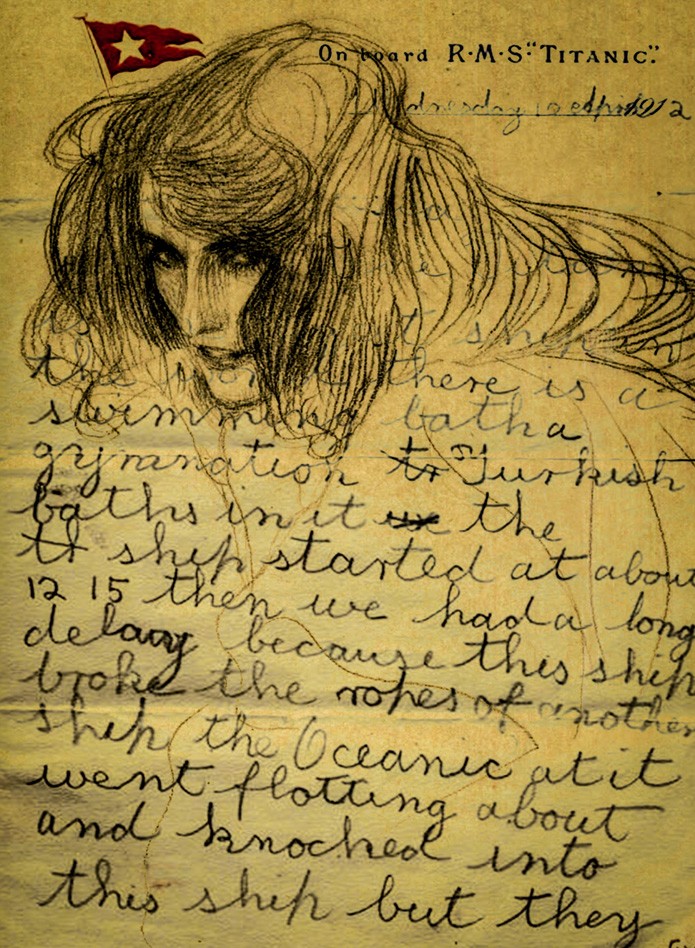 On board R·M·S "TITANIC".
Wednesday 10 April 1912
ship in
the there is a
swimming bath a
gymnation tr Turkish
baths in it the
tt ship started at about
12 15 then we had a long
delay because this ship
broke the ropes of another
ship the Oceanic at it
went flotting about
and knocked into
this ship but they